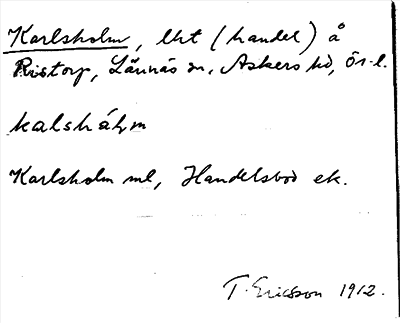 Karlsholm, lht (handel) å
Ristorp, Lännäs sn, Askers hd, Ör. l.
kalshálm
Karlsholm ml, Handelsbod ek.
T. Ericsson 1912.